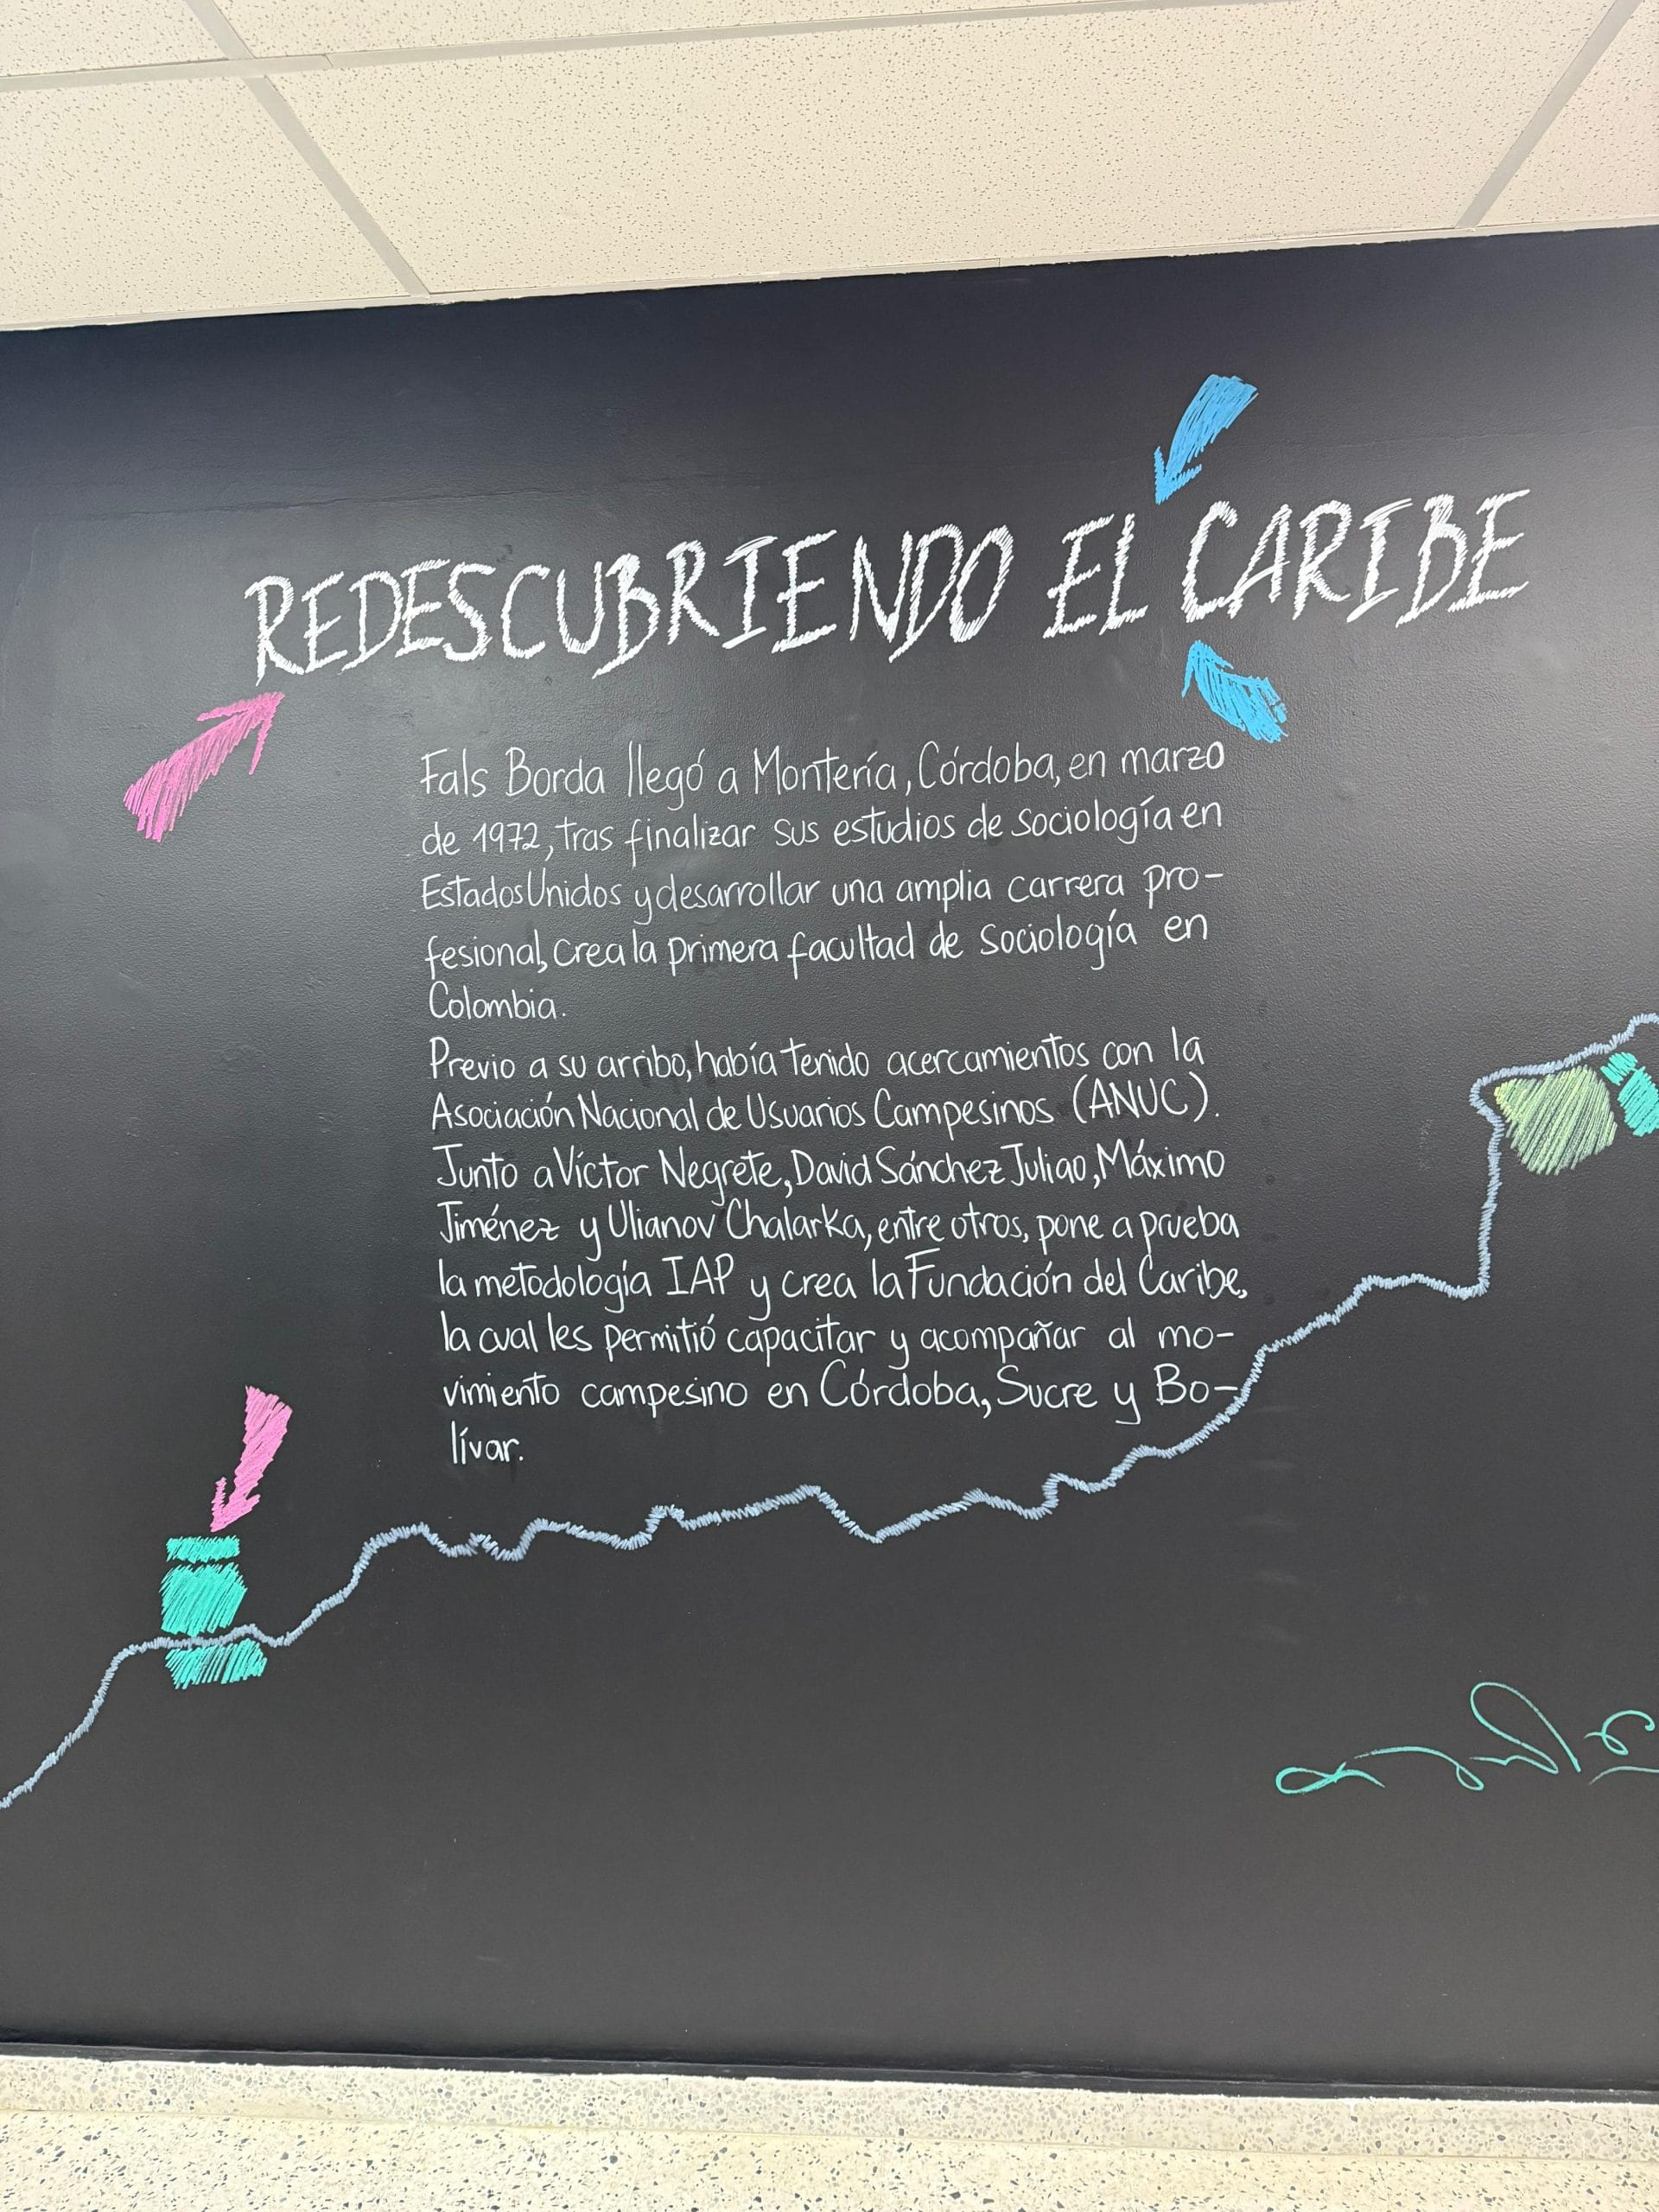 REDESCUBRIENDO EL CARIBE
Fals Borda llegó a Montería, Córdoba, en marzo
de 1972, tras finalizar sus estudios de sociología en
Estados Unidos y desarrollar una amplia carrera pro-
fesional, crea la primera facultad de sociología en
Colombia.
Previo a su arribo, había tenido acercamientos con la
Asociación Nacional de Usuarios Campesinos (ANUC).
Junto a Víctor Negrete, David Sánchez Juliao, Máximo
Jiménez y Ulianov Chalarka, entre otros, pone a prueba
la metodología IAP y crea la Fundación del Caribe,
la cual les permitió capacitar y acompañar al mo-
vimiento campesino en Córdoba, Sucre y Bo-
lívar.